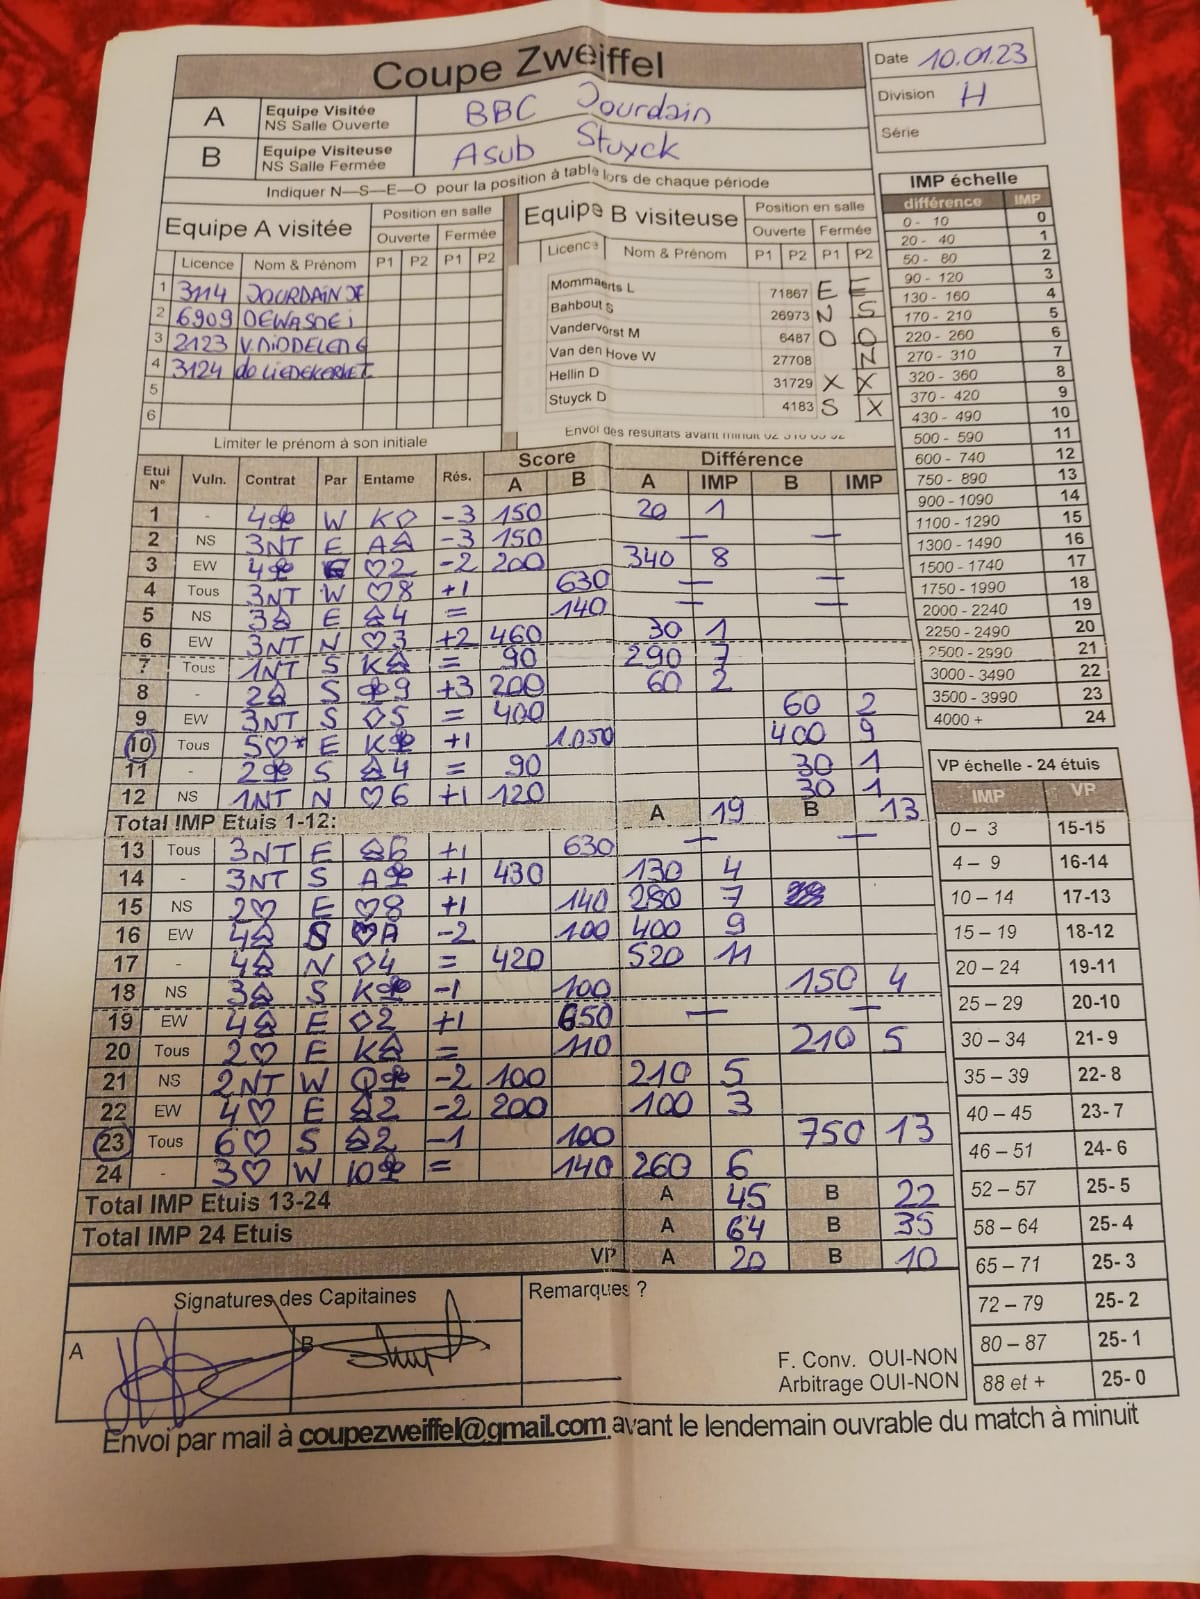 Coupe Zweiffel
Date 10.01.23
Division H
Série
A Equipe Visitée NS Salle Ouverte BBC Jourdain
B Equipe Visiteuse NS Salle Fermée Asub Stuyck
Indiquer N—S—E—O pour la position à table lors de chaque période
Equipe A visitée Position en salle
Ouverte Fermée
Licence Nom & Prénom P1 P2 P1 P2
1 3114 JOURDAIN JF
2 6909 DEWASME i
3 2123 V.MIDDELEM G
4 3124 de LIEDEKERKE T.
5
6
Limiter le prénom à son initiale
Equipe B visiteuse Position en salle
Ouverte Fermée
Licence Nom & Prénom P1 P2 P1 P2
Mommaerts L 71867 E E
Bahbout S 26973 N S
Vandervorst M 6487 O O
Van den Hove W 27708 N
Hellin D 31729 X X
Stuyck D 4183 S X
Envoi des resultats avant minuit
IMP échelle
différence IMP
0 - 10 0
20 - 40 1
50 - 80 2
90 - 120 3
130 - 160 4
170 - 210 5
220 - 260 6
270 - 310 7
320 - 360 8
370 - 420 9
430 - 490 10
500 - 590 11
600 - 740 12
750 - 890 13
900 - 1090 14
1100 - 1290 15
1300 - 1490 16
1500 - 1740 17
1750 - 1990 18
2000 - 2240 19
2250 - 2490 20
2500 - 2990 21
3000 - 3490 22
3500 - 3990 23
4000 + 24
Score Différence
Etui N° Vuln. Contrat Par Entame Rés. A B A IMP B IMP
1 - 4♣ W K♢ -3 150 20 1
2 NS 3NT E A♤ -3 150 — —
3 EW 4♣ ♡2 -2 200 340 8
4 Tous 3NT W ♡8 +1 630 — —
5 NS 3♤ E ♤4 = 140 — —
6 EW 3NT N ♡3 +2 460 30 1
7 Tous 1NT S K♤ = 90 290 7
8 - 2♤ S ♣9 +3 200 60 2
9 EW 3NT S ♢5 = 400 60 2
10 Tous 5♡* E K♣ +1 1.050 400 9
11 - 2♣ S ♤4 = 90 30 1
12 NS 1NT N ♡6 +1 120 30 1
Total IMP Etuis 1-12: A 19 B 13
13 Tous 3NT E ♤6 +1 630 — —
14 - 3NT S A♣ +1 430 130 4
15 NS 2♡ E ♡8 +1 140 280 7
16 EW 4♤ S ♡A -2 100 400 9
17 - 4♤ N ♢4 = 420 520 11
18 NS 3♤ S K♣ -1 100 150 4
19 EW 4♤ E ♢2 +1 650 — —
20 Tous 2♡ E K♤ = 110 210 5
21 NS 2NT W Q♣ -2 100 210 5
22 EW 4♡ E ♤2 -2 200 100 3
23 Tous 6♡ S ♤2 -1 100 750 13
24 - 3♡ W 10♣ = 140 260 6
Total IMP Etuis 13-24 A 45 B 22
Total IMP 24 Etuis A 64 B 35
VP A 20 B 10
VP échelle - 24 étuis
IMP VP
0 – 3 15-15
4 – 9 16-14
10 – 14 17-13
15 – 19 18-12
20 – 24 19-11
25 – 29 20-10
30 – 34 21- 9
35 – 39 22- 8
40 – 45 23- 7
46 – 51 24- 6
52 – 57 25- 5
58 – 64 25- 4
65 – 71 25- 3
72 – 79 25- 2
80 – 87 25- 1
88 et + 25- 0
Signatures des Capitaines
A
B
Remarques ?
F. Conv. OUI-NON
Arbitrage OUI-NON
Envoi par mail à coupezweiffel@gmail.com avant le lendemain ouvrable du match à minuit